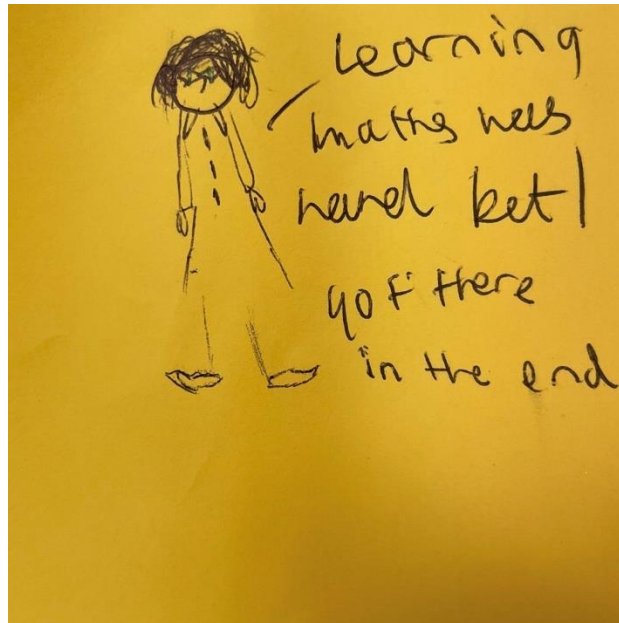 Learning
maths was
hard but I
got there
in the end